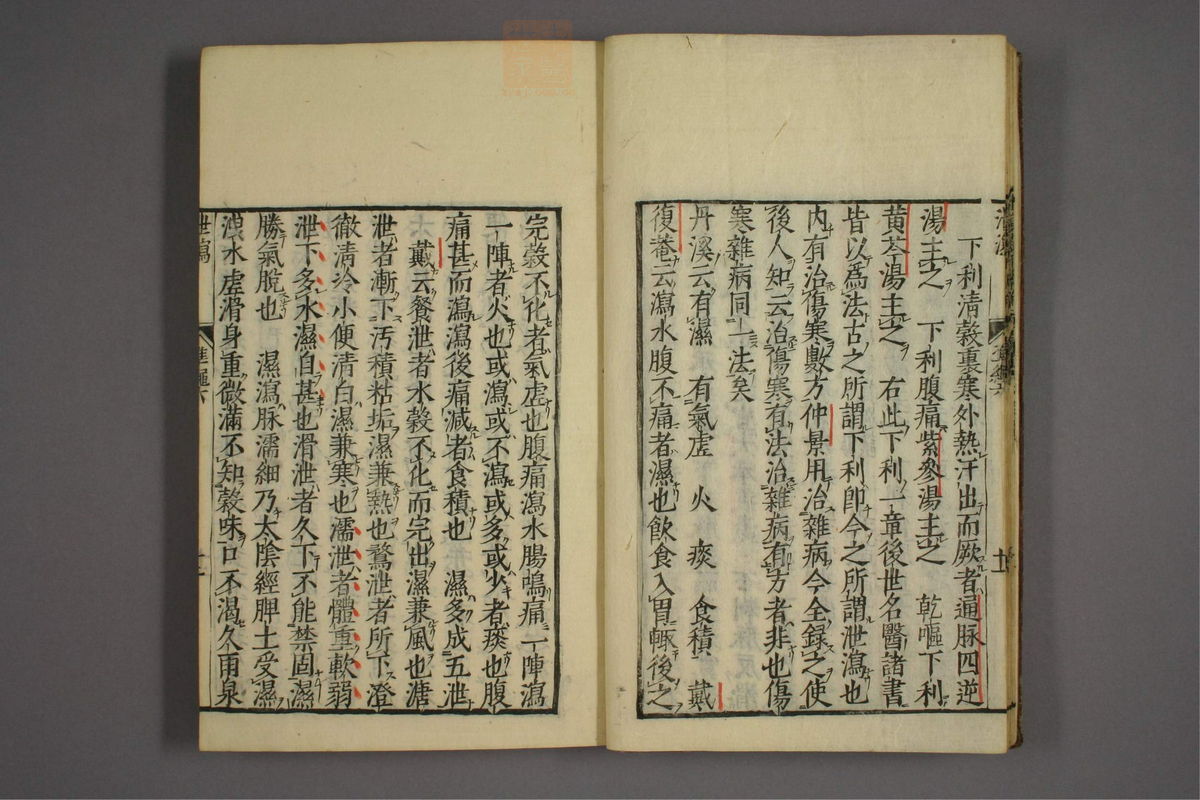 下利清穀裏寒外熱汗出而厥者通脉四逆
湯主之　下利腹痛紫參湯主之　乾嘔下利
黄芩湯主之　右此下利一章後世名醫諸書
皆以爲法古之所謂下利卽今之所謂泄瀉也
内有治傷寒數方仲景用治雜病今全録之使
後人知云治傷寒有法治雜病有方者非也傷
寒雜病同一法矣
丹溪云有濕　有氣虚　火　痰　食積　戴
復菴云瀉水腹不痛者濕也飲食入胃輙後之
完穀不化者氣虚也腹痛瀉水腸鳴痛一陣瀉
一陣者火也或瀉或不瀉或多或少者痰也腹
痛甚而瀉瀉後痛减者食積也　濕多成五泄
戴云飧泄者水穀不化而完出濕兼風也溏
泄者漸下汚積粘垢濕兼熱也鶩泄者所下澄
徹清冷小便清白濕兼寒也濡泄者體重軟弱
泄下多水濕自甚也滑泄者久下不能禁固濕
勝氣脱也　濕瀉脉濡細乃太陰經脾土受濕
洩水虚滑身重微滿不知穀味口不渇久雨泉
泄瀉